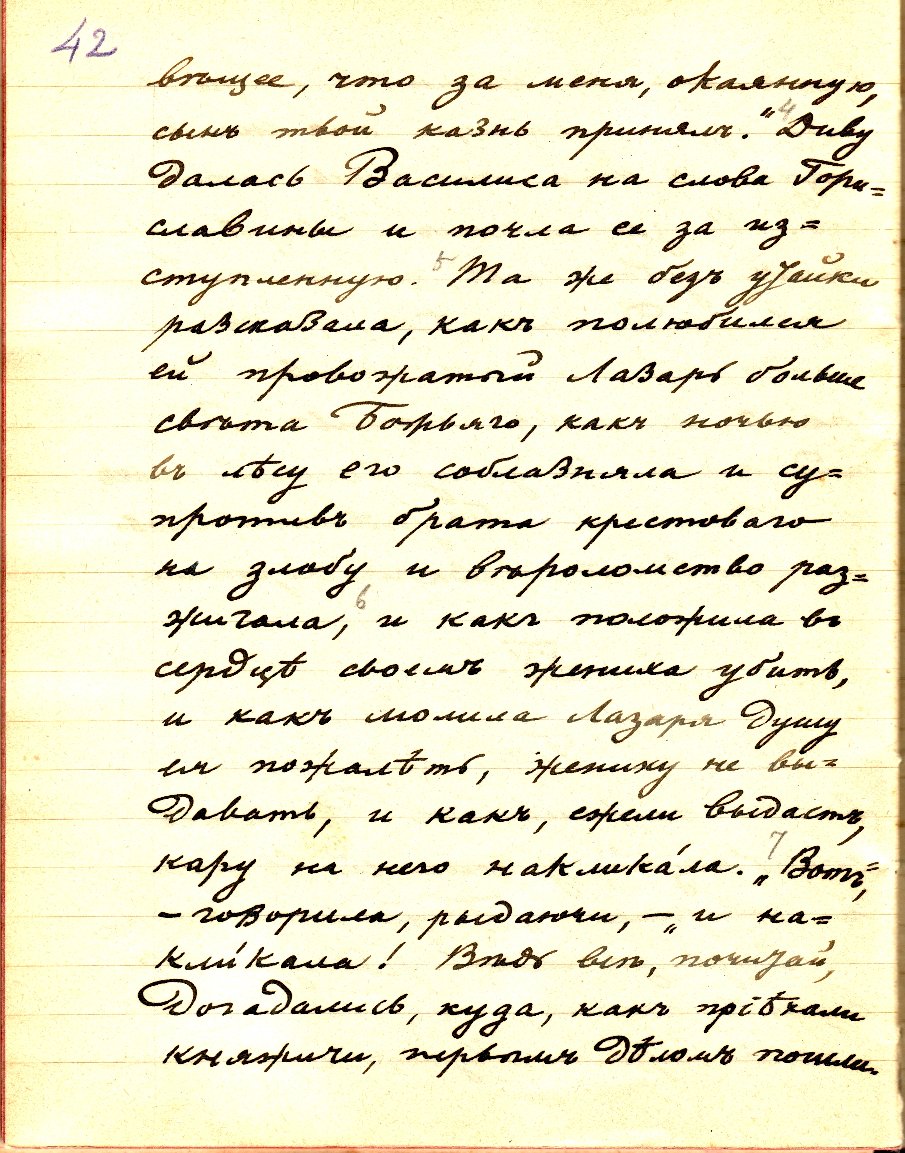 42
вѣщее, что за меня, окаянную,
сынъ твой казнь принялъ." 4 Диву
далась Василиса на слова Гори=
славины и почла ее за из=
ступленную. 5 Та же безъ утайки
разсказала, какъ полюбился
ей провожатый Лазарь больше
свѣта Божьяго, какъ ночью
въ лѣсу его соблазняла и су=
противъ брата крестоваго
на злобу и вѣроломство раз=
жигала, 6 и какъ положила въ
сердцѣ своемъ жениха убить,
и какъ молила Лазаря душу
ея пожалѣть, жениху не вы=
давать, и какъ, ежели выдастъ,
кару на него накликáла. 7 „Вотъ",
– говорила, рыдаючи, – „и на=
кли́кала! Вѣдь вы, почитай,
догадались, куда, какъ пріѣхали
княжичи, первымъ дѣломъ пошли.